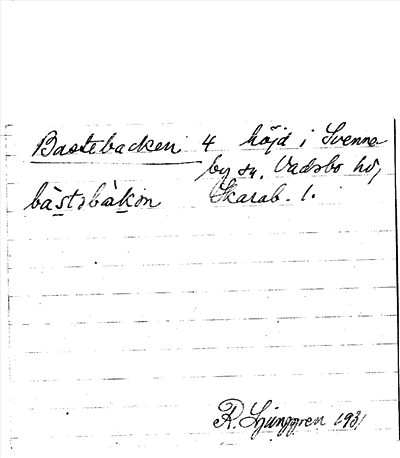 Bastebacken 4 höjd i Svenne
by sn, Vadsbo hd,
bàstəbàkən Skarab. l.
R. Ljunggren 1931